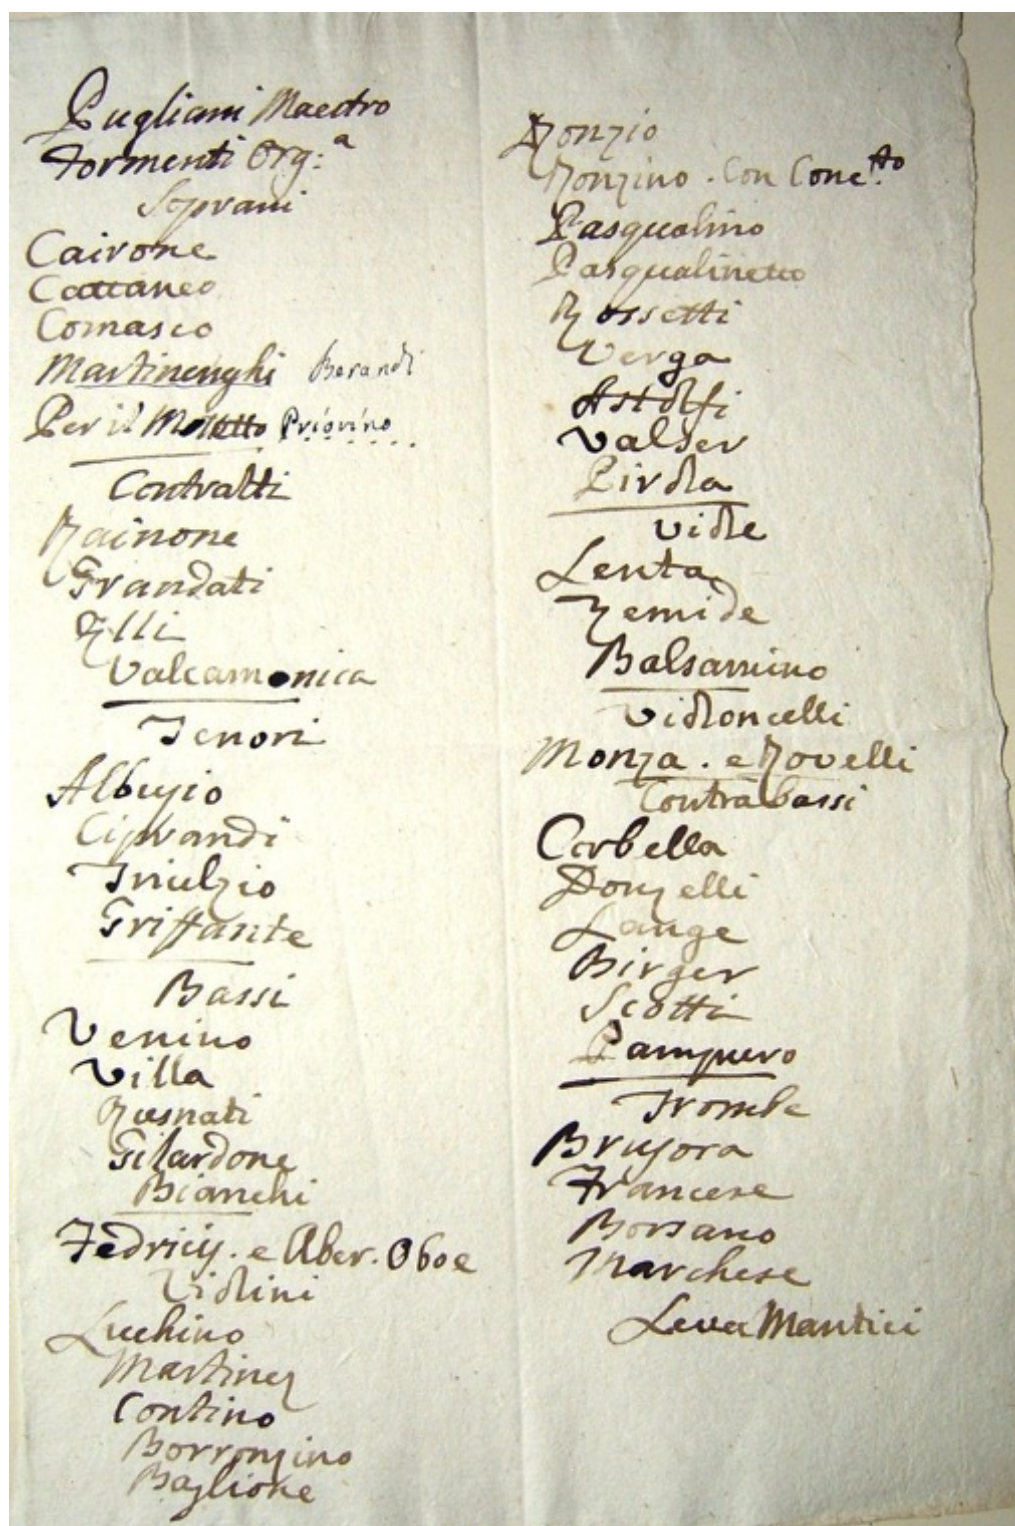 Pugliani Maestro
Tormenti Org:a
Soprani
Cairone
Cattaneo
Comasco
Martinenghi Berandi
Per il Motetto Priorino
Contralti
Rainone
Grandati
Elli
Valcamonica
Tenori
Albuzio
Ciprandi
Triulzio
Griffante
Bassi
Venino
Villa
Rusnati
Gilardone
Bianchi
Fedricij. e Aber. Oboe
Violini
Luchino
Martinez
Contino
Borronzino
Baglione
Ronzio
Ronzino. Con Conc.to
Pasqualino
Pasqualinetto
Rossetti
Verga
Astolfi
Valser
Pirola
Viole
Lenta
Zemide
Balsamino
Violoncelli
Monza. e Rovelli
Contrabassi
Corbella
Donzelli
Lange
Birger
Scotti
Pampuro
Trombe
Brusora
Francese
Borsano
Marchese
Leva Mantici